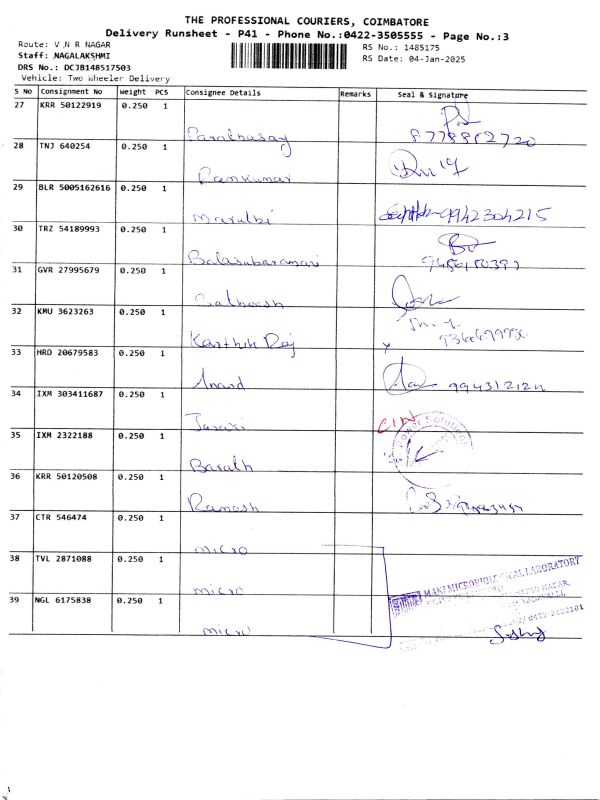 THE PROFESSIONAL COURIERS, COIMBATORE
Delivery Runsheet - P41 - Phone No.:0422-3505555 - Page No.:3
Route: V N R NAGAR
RS No.: 1485175
Staff: NAGALAKSHMI
RS Date: 04-Jan-2025
DRS No.: DCJB148517503
Vehicle: Two Wheeler Delivery
S NO Consignment No Weight PCS Consignee Details Remarks Seal & Signature
27 KRR 50122919 0.250 1
8778852720
28 TNJ 640254 0.250 1
Ramkumar
29 BLR 5005162616 0.250 1
Maruthi 9942304215
30 TRZ 54189993 0.250 1
Balasubaramani
31 GVR 27995679 0.250 1
Satheesh
32 KMU 3623263 0.250 1
Karthik Raj
33 HRD 20679583 0.250 1
Anand
34 IXM 303411687 0.250 1
CIN
35 IXM 2322188 0.250 1
Barath
36 KRR 50120508 0.250 1
Ramesh
37 CTR 546474 0.250 1
micro
38 TVL 2871088 0.250 1
micro
MICROBIOLOGICAL LABORATORY
39 NGL 6175838 0.250 1
micro